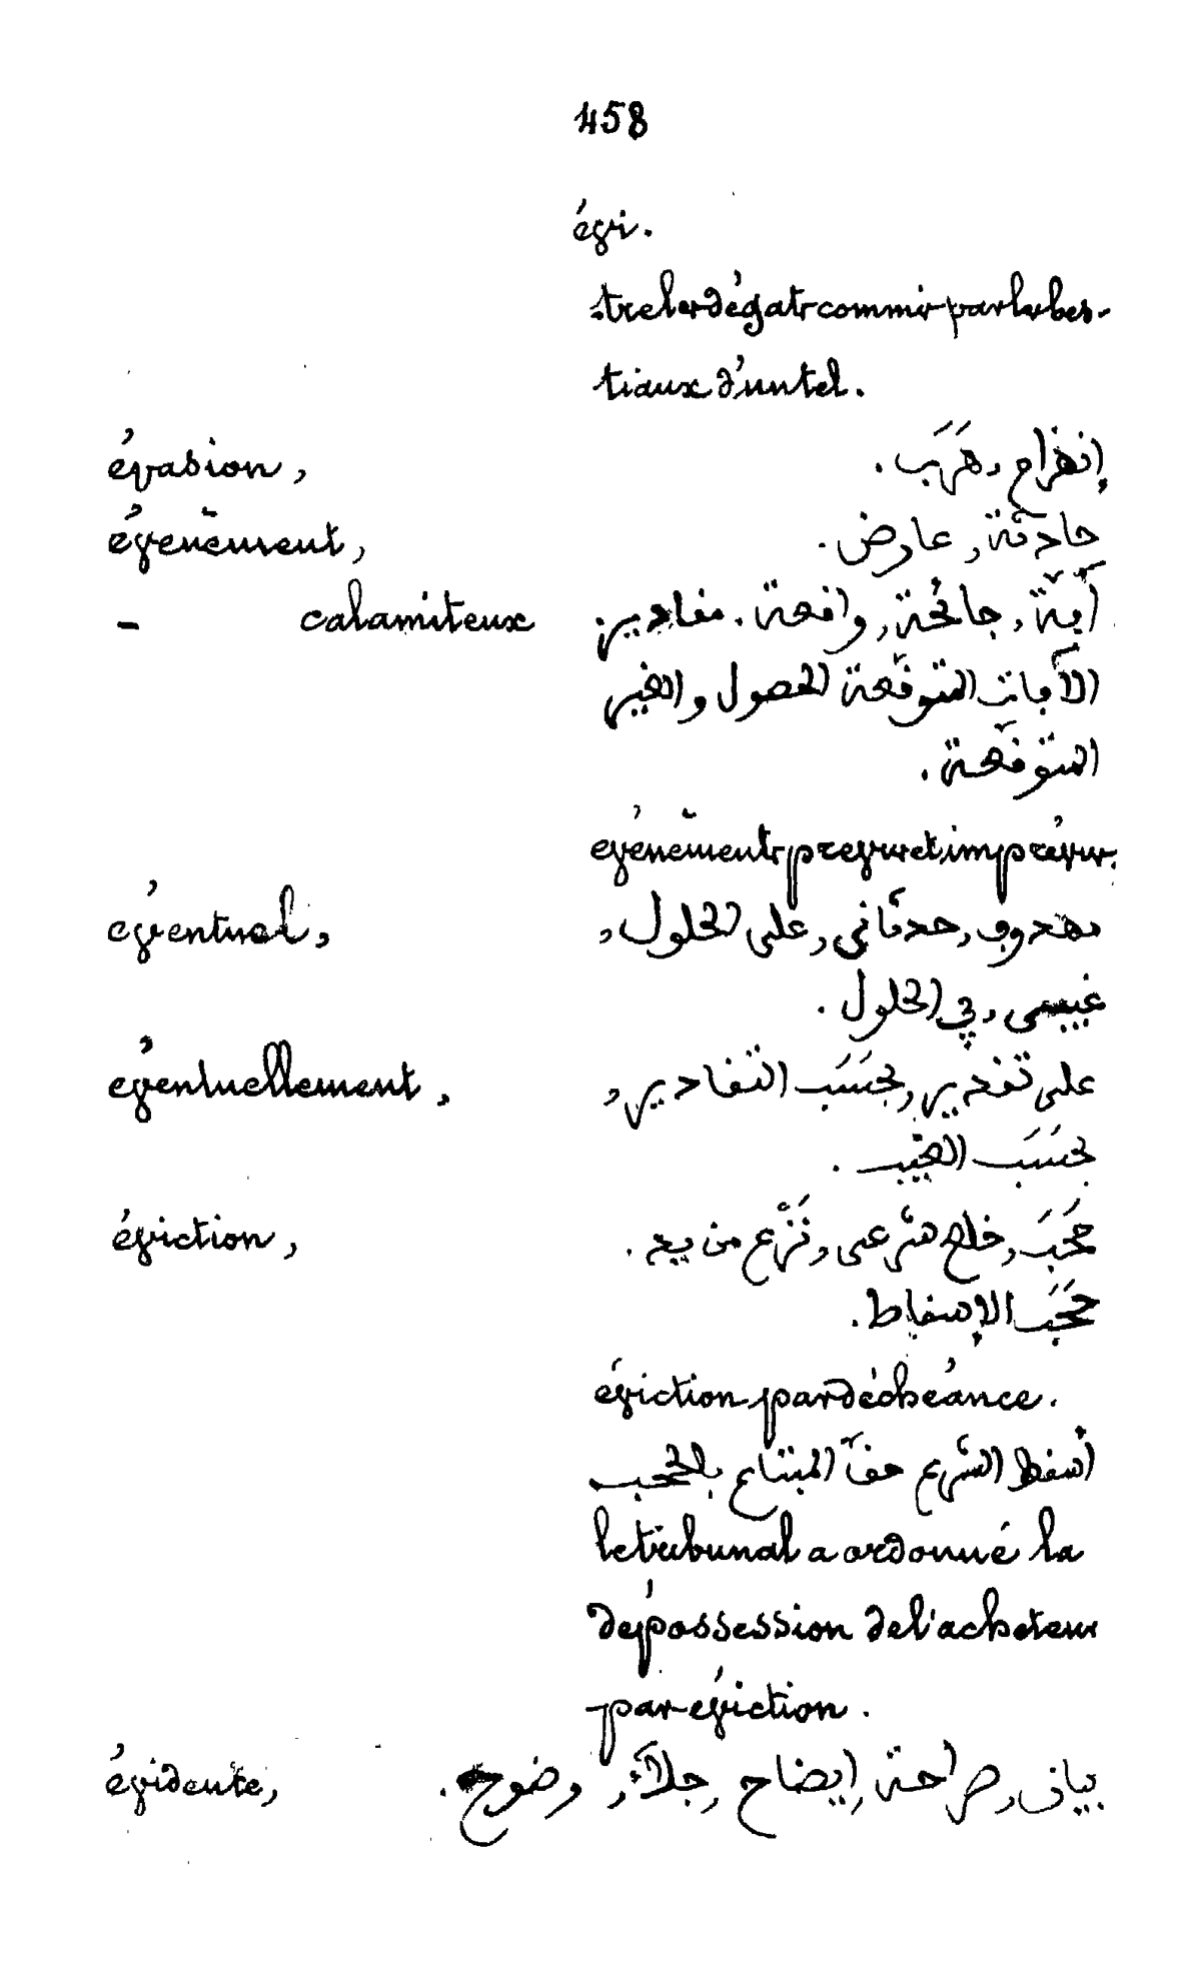 458
évi.
tre les dégats commis par les bes-
tiaux d'un tel.
évasion, إنفراج, هَرَب.
événement, حادثة, عارض.
- calamiteux آفة, جائحة, واقعة. مقادير
الآفات المتوقّعة الحصول والغير
المتوقّعة.
événements prevus et imprévus.
eventuel, حدثاني, على الحلول,
غيبي, في الحلول.
eventuellement, على تقدير, بحَسَب التقادير,
بحَسَب الغيب.
éviction, حَجَب, خلع شرعي, نَزْع من يد.
حَجَب الإسقاط.
éviction par déchéance.
أسقط الشرع حقّ المبتاع بالحجب
le tribunal a ordonné la
dépossession de l'acheteur
par éviction.
évidente, بيان, صراحة, إيضاح, جلاء, وضوح.